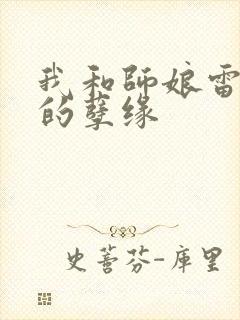 我和师娘雷
的孽缘
史蒂芬-库里